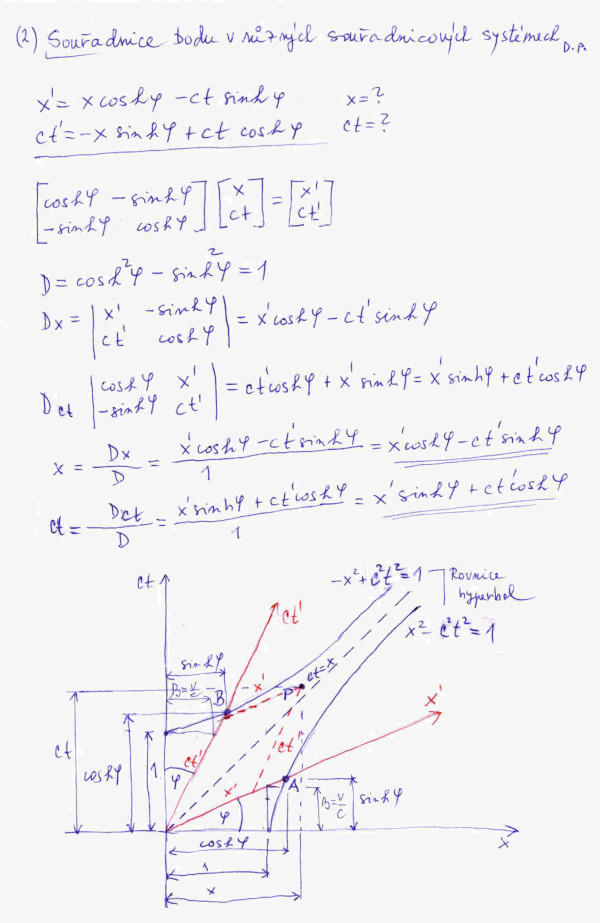 (2) Souřadnice bodu v různých souřadnicových systémech D.P.
x' = x coshφ - ct sinhφ x = ?
ct' = -x sinhφ + ct coshφ ct = ?
[coshφ -sinhφ] [x] = [x']
[-sinhφ coshφ] [ct] [ct']
D = cosh²φ - sinh²φ = 1
Dx = | x' -sinhφ | = x'coshφ - ct'sinhφ
| ct' coshφ |
Dct | coshφ x' | = ct'coshφ + x'sinhφ = x'sinhφ + ct'coshφ
| -sinhφ ct' |
x = Dx/D = (x'coshφ - ct'sinhφ)/1 = x'coshφ - ct'sinhφ
ct = Dct/D = (x'sinhφ + ct'coshφ)/1 = x'sinhφ + ct'coshφ
ct
-x² + c²t² = 1
Rovnice
hyperbol
x² - c²t² = 1
ct'
sinhφ
ct=x
B=v/c
B
x'
P
x'
ct
coshφ
1
ct'
ct'
φ
x'
A
φ
B=v/c
sinhφ
coshφ
x
1
x